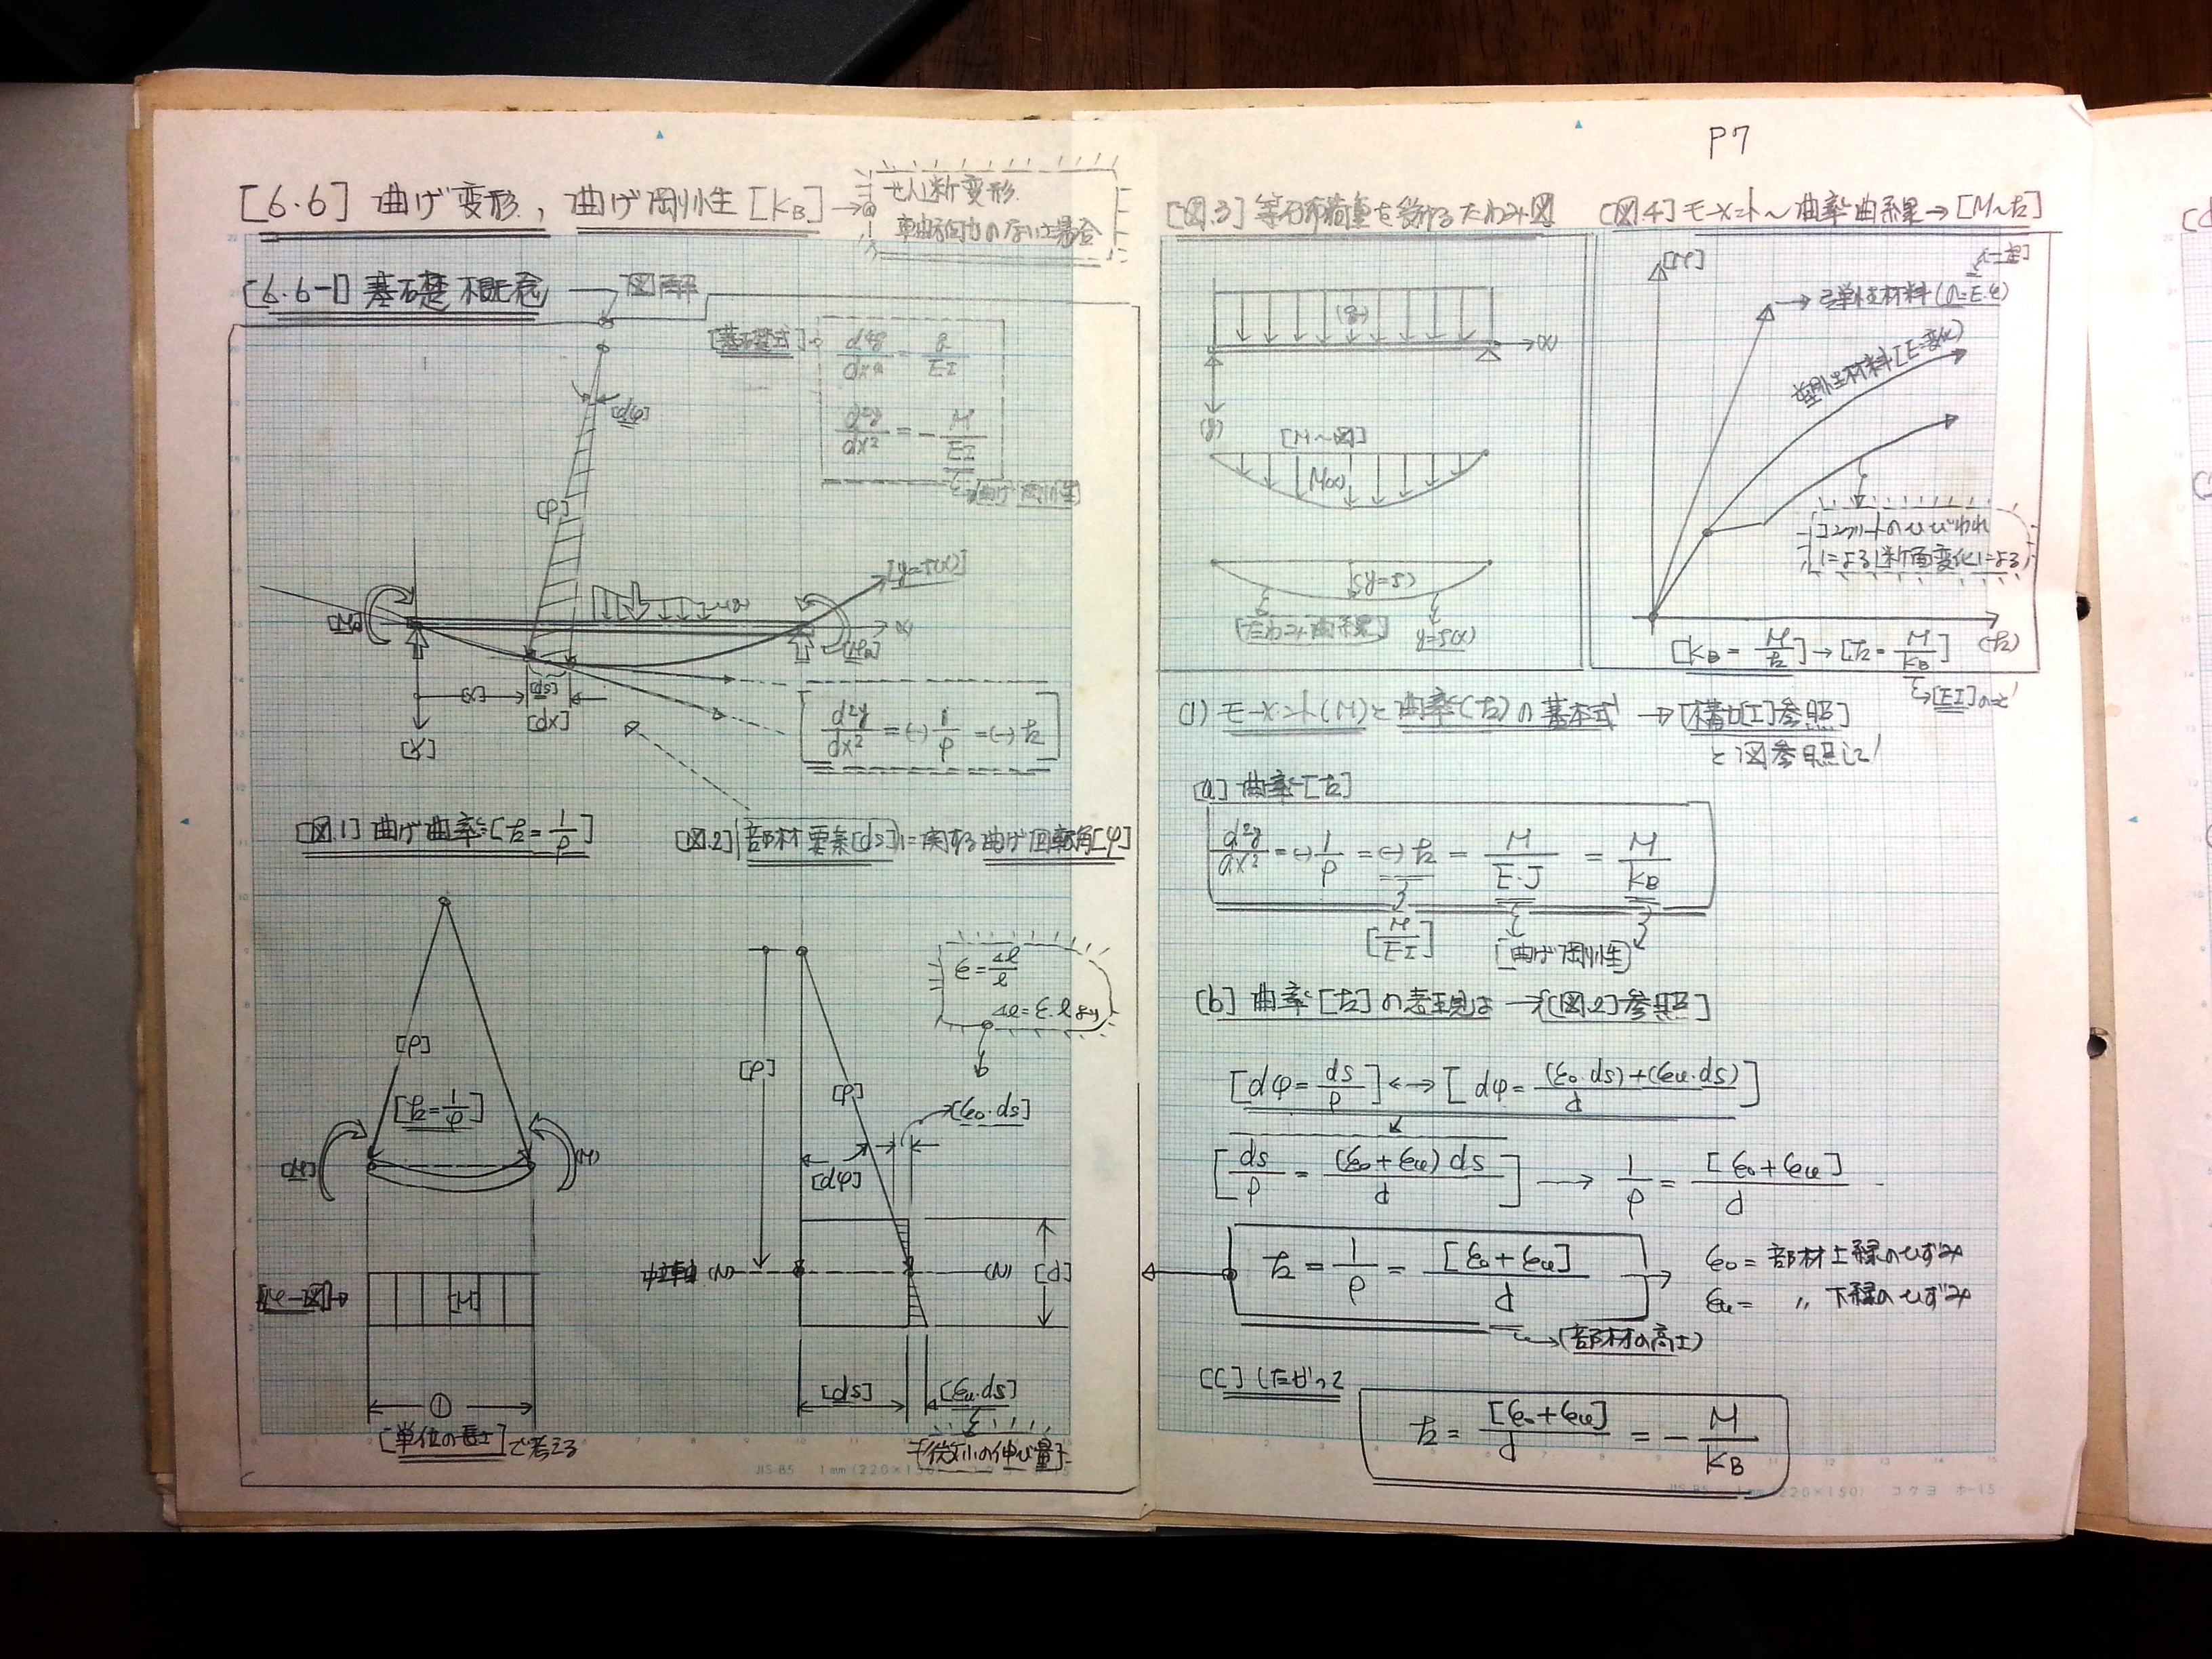 P7
[6.6] 曲げ変形, 曲げ剛性 [KB] →
せん断変形.
軸方向力のない場合
[6.6-1] 基礎概念 図解
[基礎式]→
d⁴y/dx⁴ = q/EI
d²y/dx² = - M/EI
→曲げ剛性
[dφ]
[ρ]
[y=f(x)]
(q)
(x)
[dx]
[ds]
d²y/dx² = (-) 1/ρ = (-) k
[図.1] 曲げ曲率 [k = 1/ρ]
[図.2] 部材要素[ds]に関する曲げ回転角[φ]
[ρ]
[k = 1/ρ]
[M]
(M)
[M]
①
[単位の長さ]で考える
ε = Δl/l
Δl = ε.l より
[ρ]
[ρ]
[εo.ds]
[dφ]
中立軸 (N)
(N)
[d]
[ds]
[εu.ds]
[微小の伸び量]
[図.3] 等分布荷重を受けるたわみ図
(q)
(x)
(y)
[M~図]
M(x)
(y=δ)
[たわみ曲線]
y=f(x)
[図.4] モーメント~曲率曲線→[M~k]
[M]
弾性材料(σ=E.ε)
塑性材料[E=変化]
コンクリートのひびわれ
による断面変化による
[KB = M/k] → [k = M/KB]
(k)
→[EI]のこと
(1) モーメント(M)と曲率(k)の基本式 →[構力[I]参照]
と図参照して
[a] 曲率[k]
d²y/dx² = (-) 1/ρ = (-) k = M/E.J = M/KB
[M/EI]
[曲げ剛性]
[b] 曲率[k]の表現は →[図.2]参照]
[dφ = ds/ρ] ↔ [dφ = (εo.ds)+(εu.ds)/d]
[ds/ρ = (εo+εu)ds/d] → 1/ρ = [εo+εu]/d
k = 1/ρ = [εo+εu]/d →
εo = 部材上縁のひずみ
εu = 〃 下縁のひずみ
→(部材の高さ)
[C] したがって
k = [εo+εu]/d = - M/KB
JIS B5 1mm(220×150) コクヨ ホ-15
JIS B5 1mm(220×150) コクヨ ホ-15